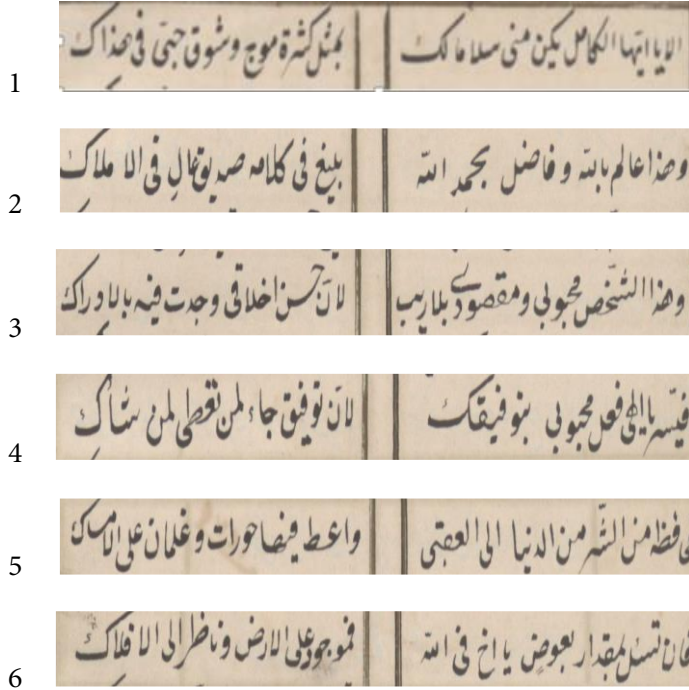 1 الا يا ايّها الكامل يكن منى سلاما لك بمثل كثرة موج وشوق حبّى فى هذاك
2 وهذا عالم بالله وفاضل بحمد الله بليغ فى كلامه صديق عال فى الاملاك
3 وهذا الشّخص محبوبى ومقصودى بلا ريب لانّ حسن اخلاقى وجدت فيه بالادراك
4 فيسّر يا الهى فعل محبوبى بتوفيقك لانّ توفيق جاء لمن تعطى لمن شاك
5 من الشّر من الدنيا الى العقبى واعط فيها حورات وغلمان على الامساك
6 تسئل بمقدار بعوض يا اخ فى الله فموجود على الارض وناظر الى الافلاك